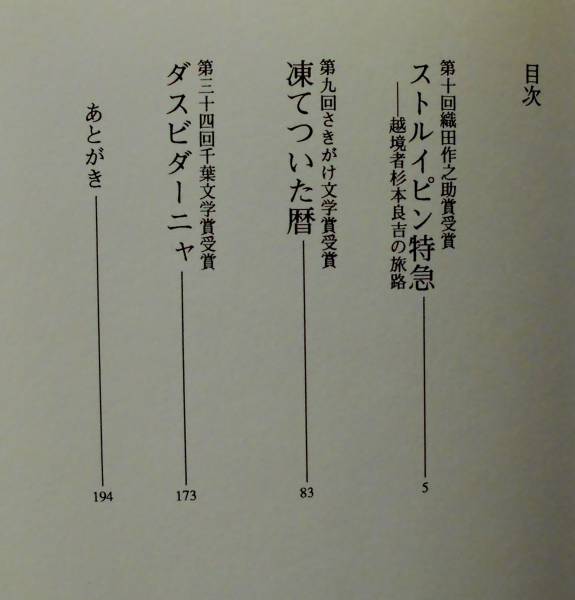 目次
第十回織田作之助賞受賞
ストルイピン特急
──越境者杉本良吉の旅路
5
第九回さきがけ文学賞受賞
凍てついた暦
83
第三十四回千葉文学賞受賞
ダスビダーニャ
173
あとがき
194